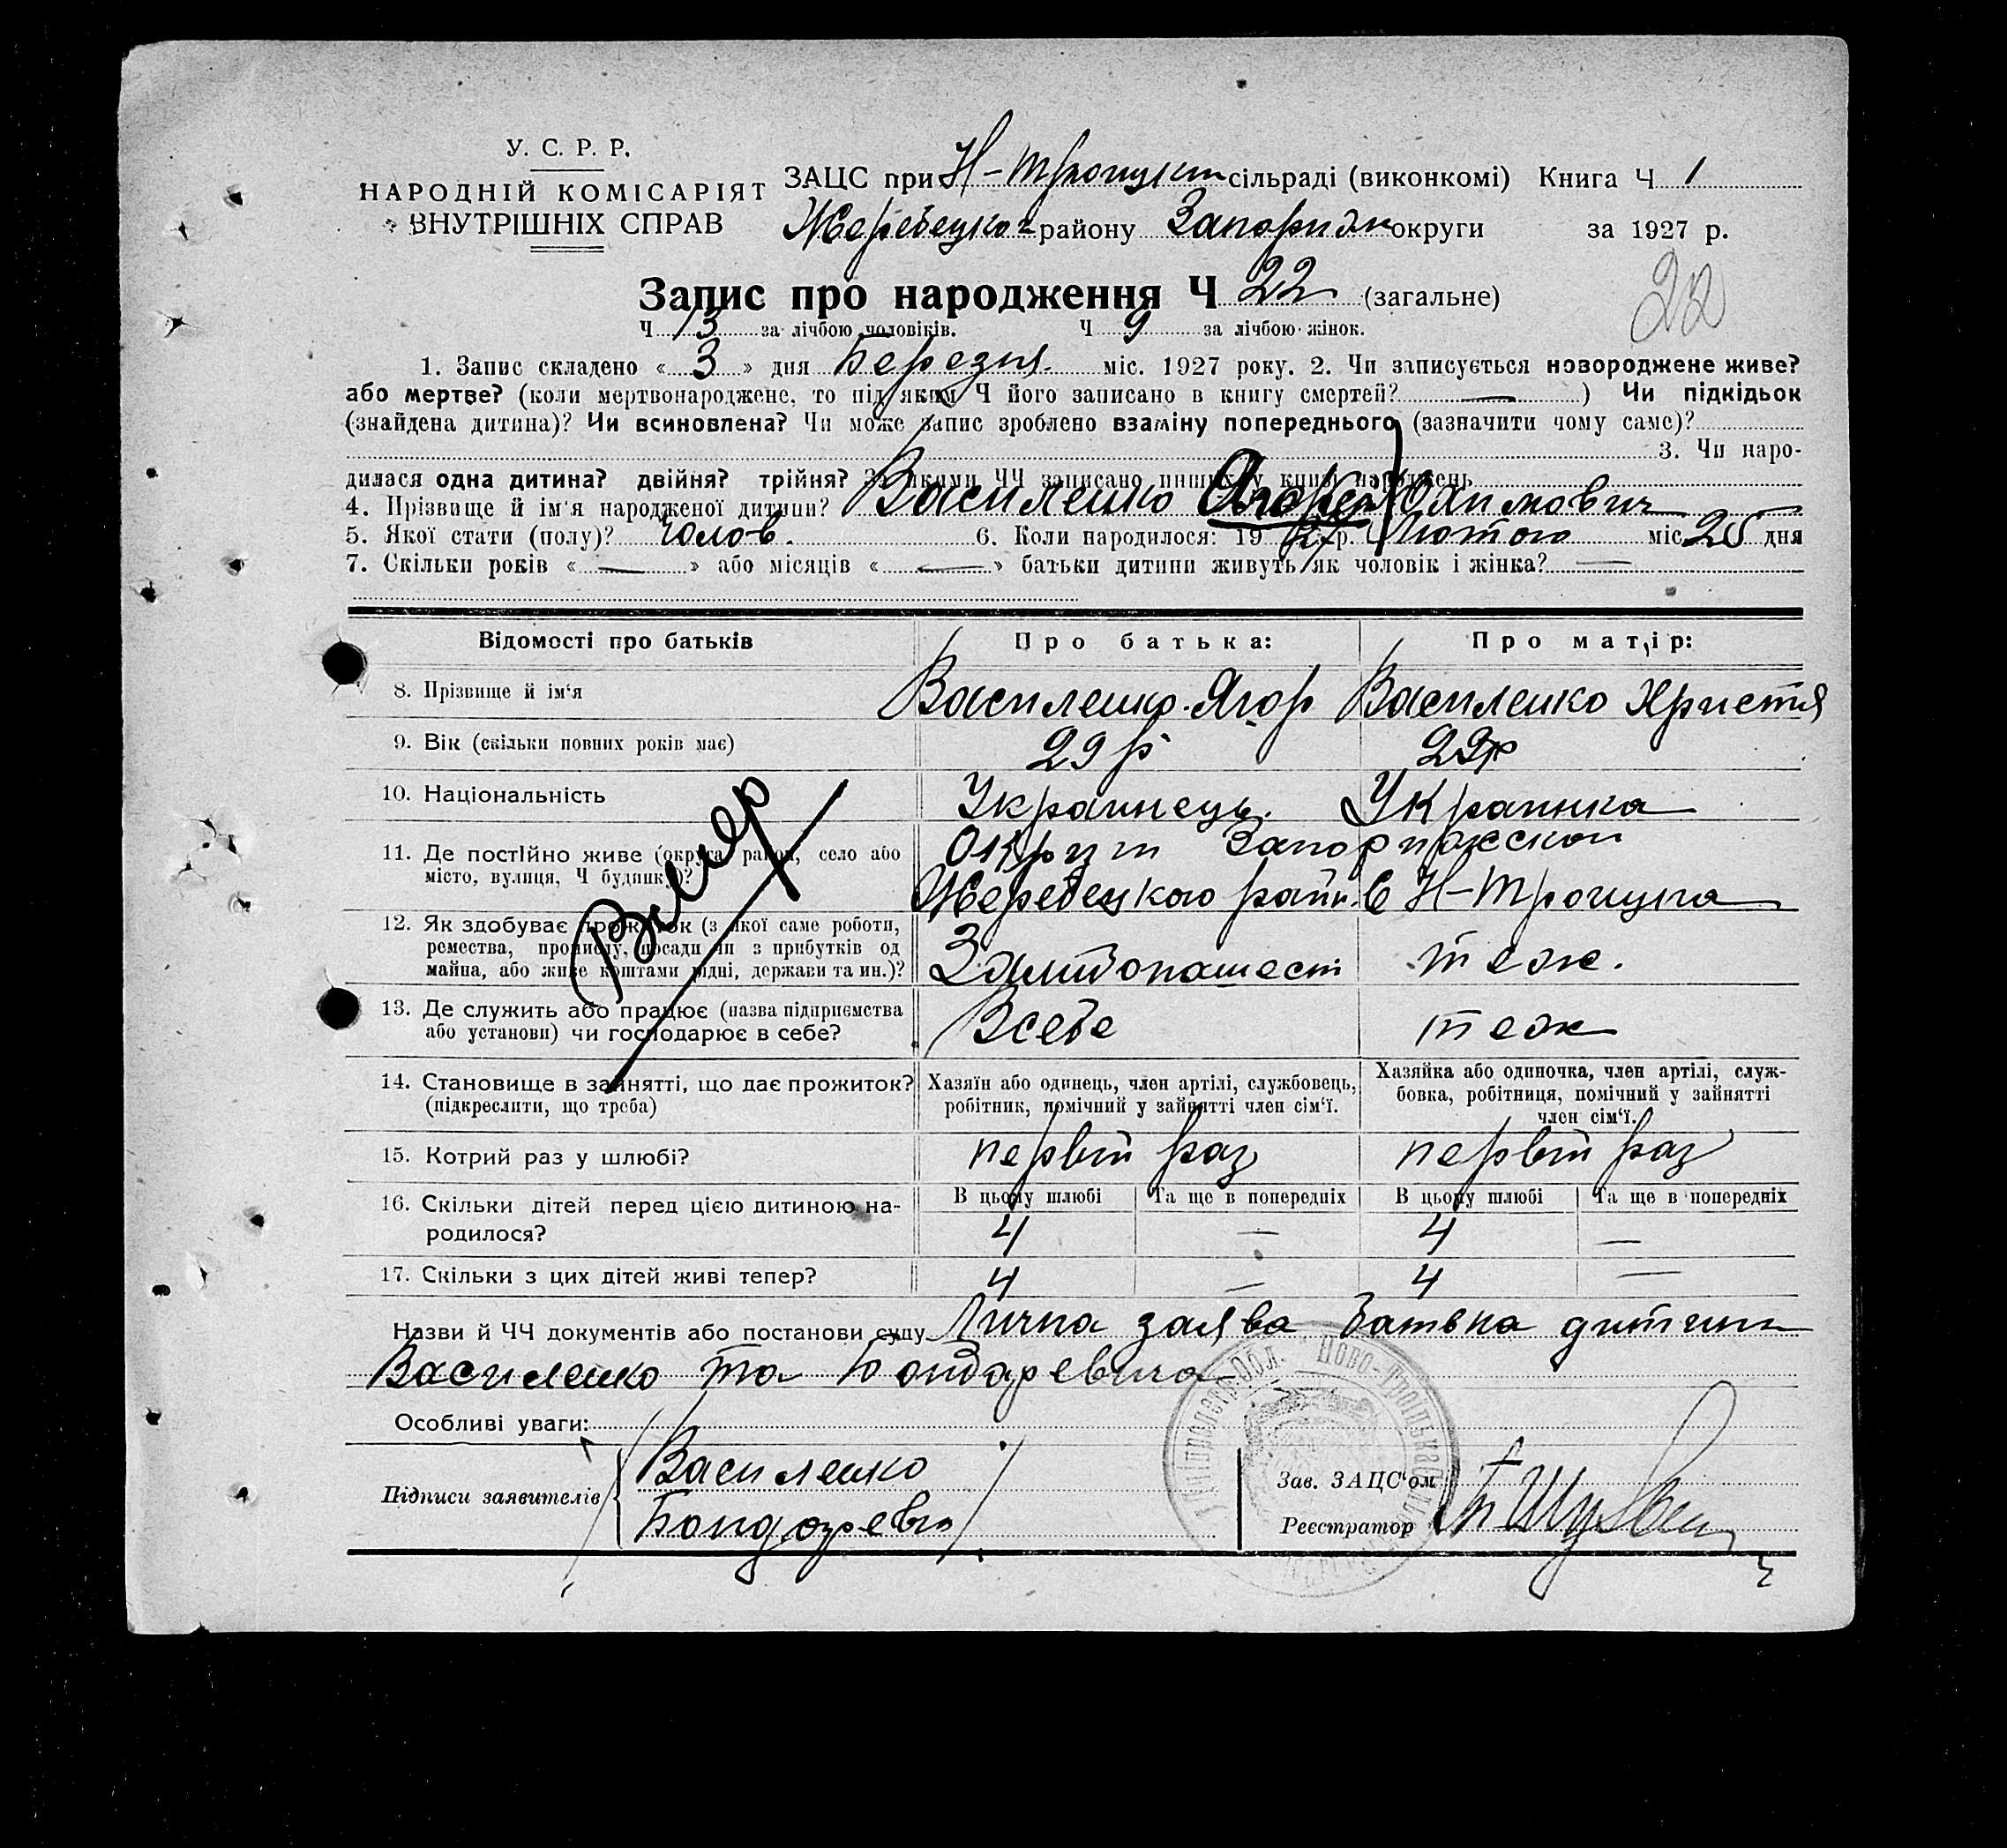 У. С. Р. Р.
НАРОДНІЙ КОМІСАРІЯТ
ВНУТРІШНІХ СПРАВ
ЗАЦС при Н-Троицькт сільраді (виконкомі) Книга Ч 1
Жеребецког району Запоридж округи за 1927 р.
Запис про народження Ч 22 (загальне)
22
Ч 13 за лічбою чоловіків. Ч 9 за лічбою жінок.
1. Запис складено « 3 » дня Березня міс. 1927 року. 2. Чи записується новороджене живе?
або мертве? (коли мертвонароджене, то під яким Ч його записано в книгу смертей? — ) Чи підкідьок
(знайдена дитина)? Чи всиновлена? Чи може запис зроблено взаміну попереднього (зазначити чому саме)?
3. Чи наро-
дилася одна дитина? двійня? трійня? За якими ЧЧ записано инших у книзі народжень
4. Прізвище й ім'я народженої дитини? Василенко
5. Якої стати (полу)? Чолов. 6. Коли народилося: 1927 р. Лютого міс 25 дня
7. Скільки років « — » або місяців « — » батьки дитини живуть як чоловік і жінка? —
Відомості про батьків Про батька: Про матір:
8. Прізвище й ім'я Василенко Ягор Василенко Христя
9. Вік (скільки повних років має) 29 р 29р
10. Національність Украинець. Украинка
11. Де постійно живе (округа, район, село або місто, вулиця, Ч будинку)?
Округи Запорижскои
Жеребецкого райн. С Н-Троицка
12. Як здобуває прожиток (з якої саме роботи,
ремества, промислу, посади чи з прибутків од
майна, або живе коштами рідні, держави та ин.)?
теж.
13. Де служить або працює (назва підприємства
або установи) чи господарює в себе?
Всебе теж
Вмер
14. Становище в занятті, що дає прожиток?
(підкреслити, що треба)
Хазяїн або одинець, член артілі, службовець,
робітник, помічний у зайнятті член сім'ї.
Хазяйка або одиночка, член артілі, служ-
бовка, робітниця, помічний у зайнятті
член сім'ї.
15. Котрий раз у шлюбі? первий раз первий раз
16. Скільки дітей перед цією дитиною на-
родилося?
В цьому шлюбі Та ще в попередніх В цьому шлюбі Та ще в попередніх
4 — 4 —
17. Скільки з цих дітей живі тепер? 4 — 4 —
Назви й ЧЧ документів або постанови суду Лична заява батька дитини
Василенко та Бондаревича
Особливі уваги:
Підписи заявителів Василенко
Зав. ЗАЦС'ом
Реєстратор